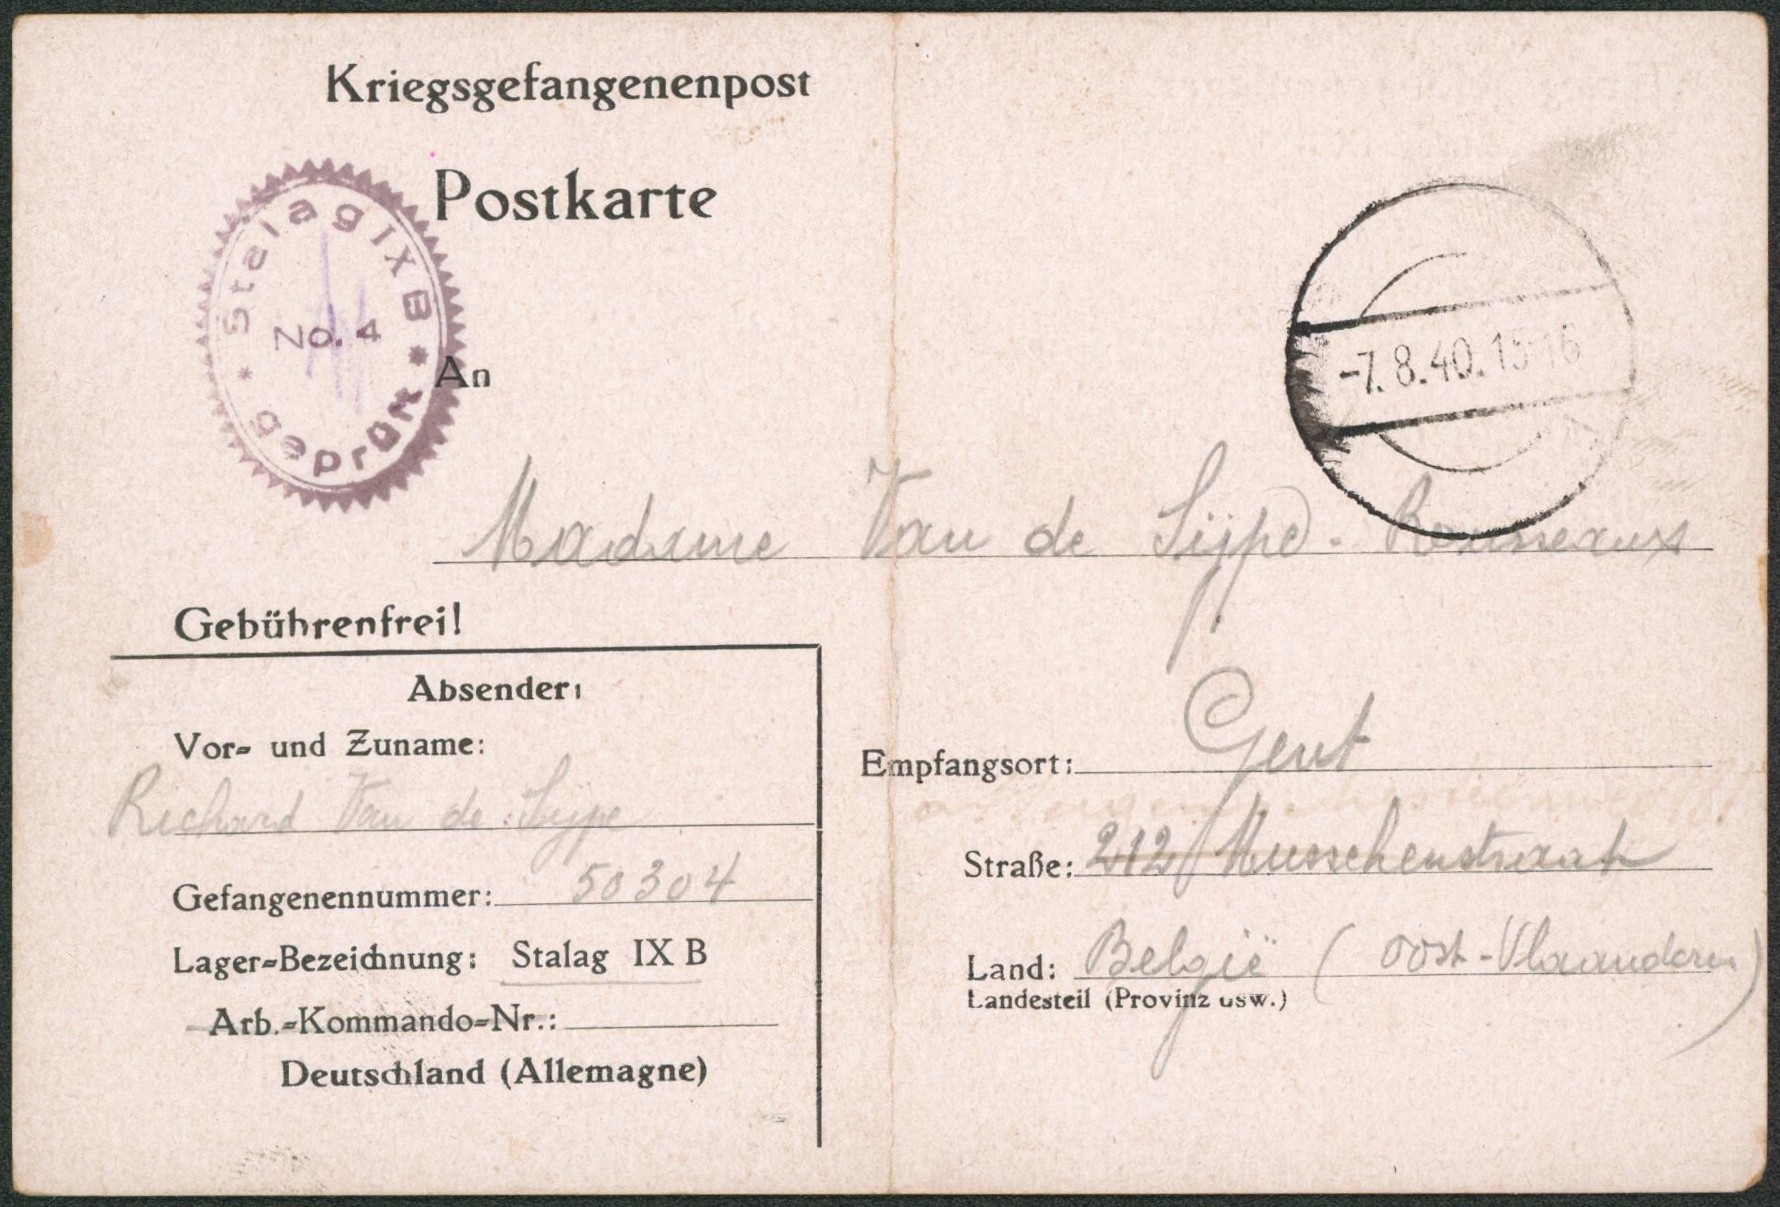 Kriegsgefangenenpost
Postkarte
Stalag IX B
No. 4
geprüft
-7.8.40.15-16
An
Madame Van de Sijpe - Rousseaux
Gebührenfrei!
Absender:
Vor- und Zuname:
Richard Van de Sijpe
Gefangenennummer: 50304
Lager-Bezeichnung: Stalag IX B
Arb.-Kommando-Nr.:
Deutschland (Allemagne)
Empfangsort: Gent
Straße: 212 Musschenstraat
Land: België (Oost-Vlaanderen)
Landesteil (Provinz usw.)